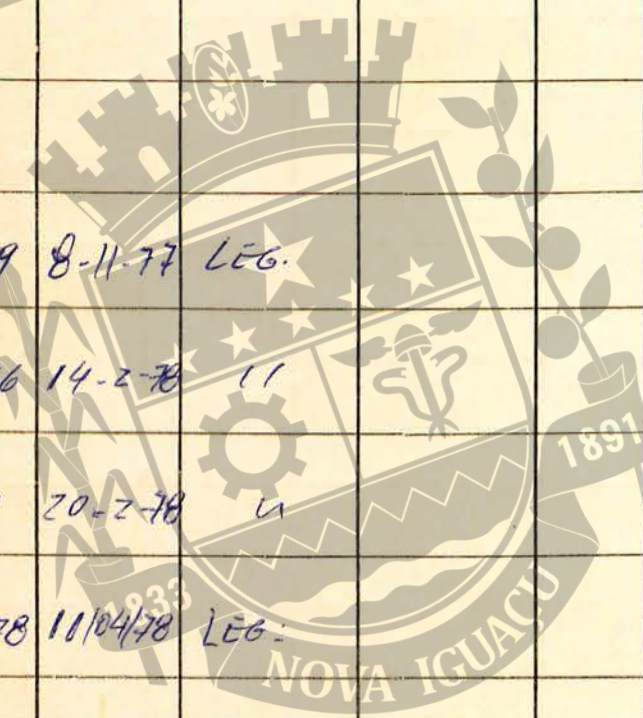 9 8-11-77 LEG.
6 14-2-78 11
20-2-78 11
78 11/04/78 LEG:
1891
1833
NOVA IGUAÇU